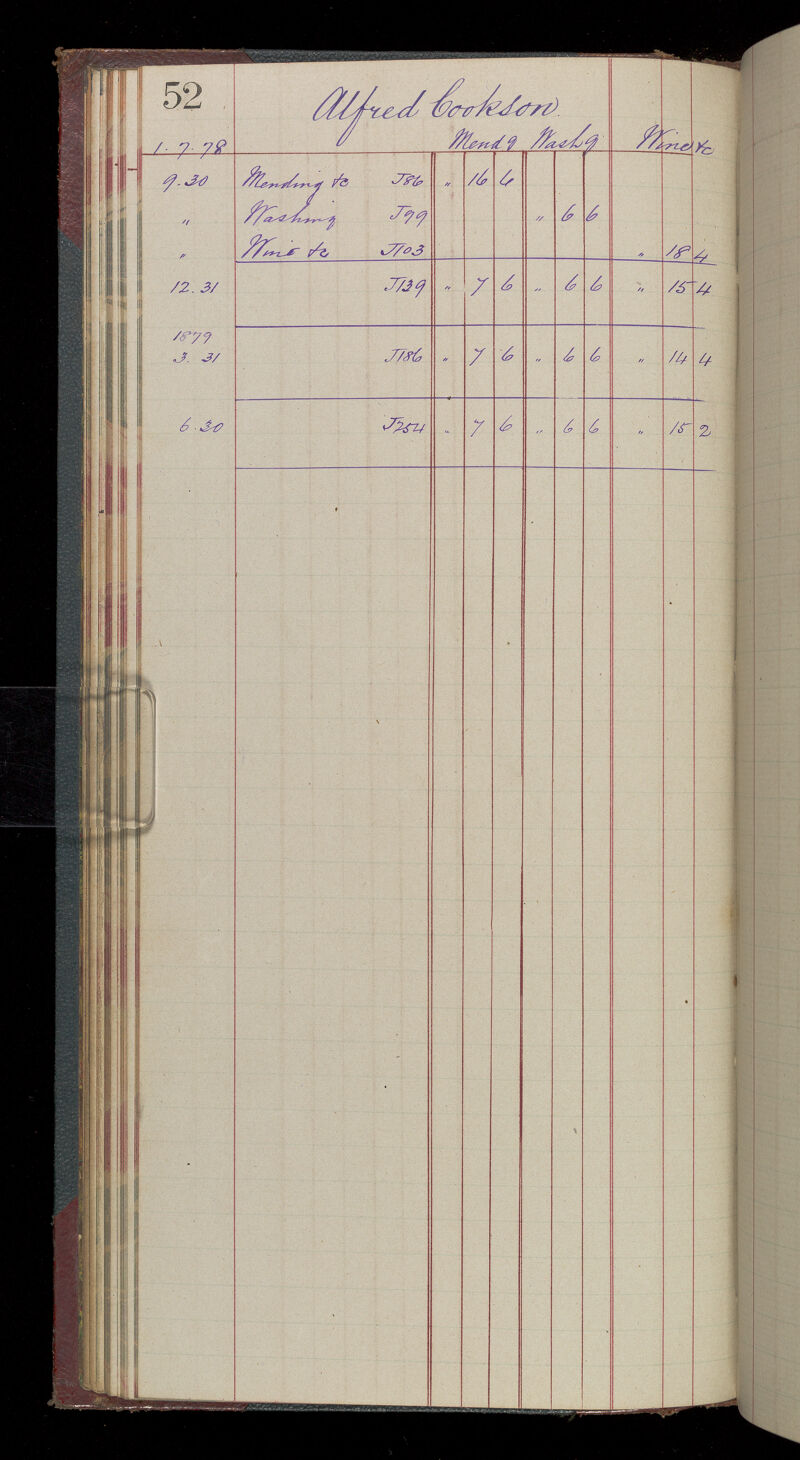 52 Alfred Cookson
1.7.78 Mendg Washg Wine &c
9.30 Mending &c J86 " 16 6
" Washing J99 " 6 6
" Wine &c J103 " 18 4
12.31 J139 " 7 6 " 6 6 " 15 4
1879
3.31 J186 " 7 6 " 6 6 " 14 4
6.30 J254 " 7 6 " 6 6 " 15 2